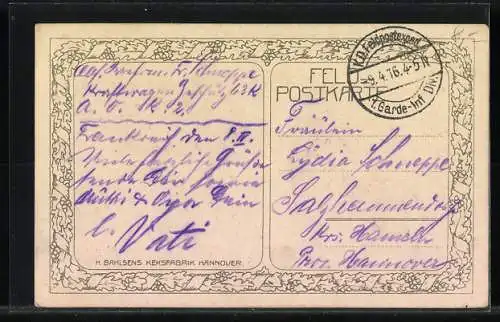 FELDPOSTKARTE
K.D. Feldpostexped.
-9.4.16. 4-5 N
1. Garde-Inf. Div.
Abs. F. Schneppe
A. O. K. 2.
Frankreich, den 8. IV.
Grüße
sende Dir sowie
Mutti & Opa Dein
l. Vati
Fräulein
Lydia Schneppe
Salzhemmendorf
Krs. Hameln
Prov. Hannover
H. BAHLSENS KEKSFABRIK HANNOVER